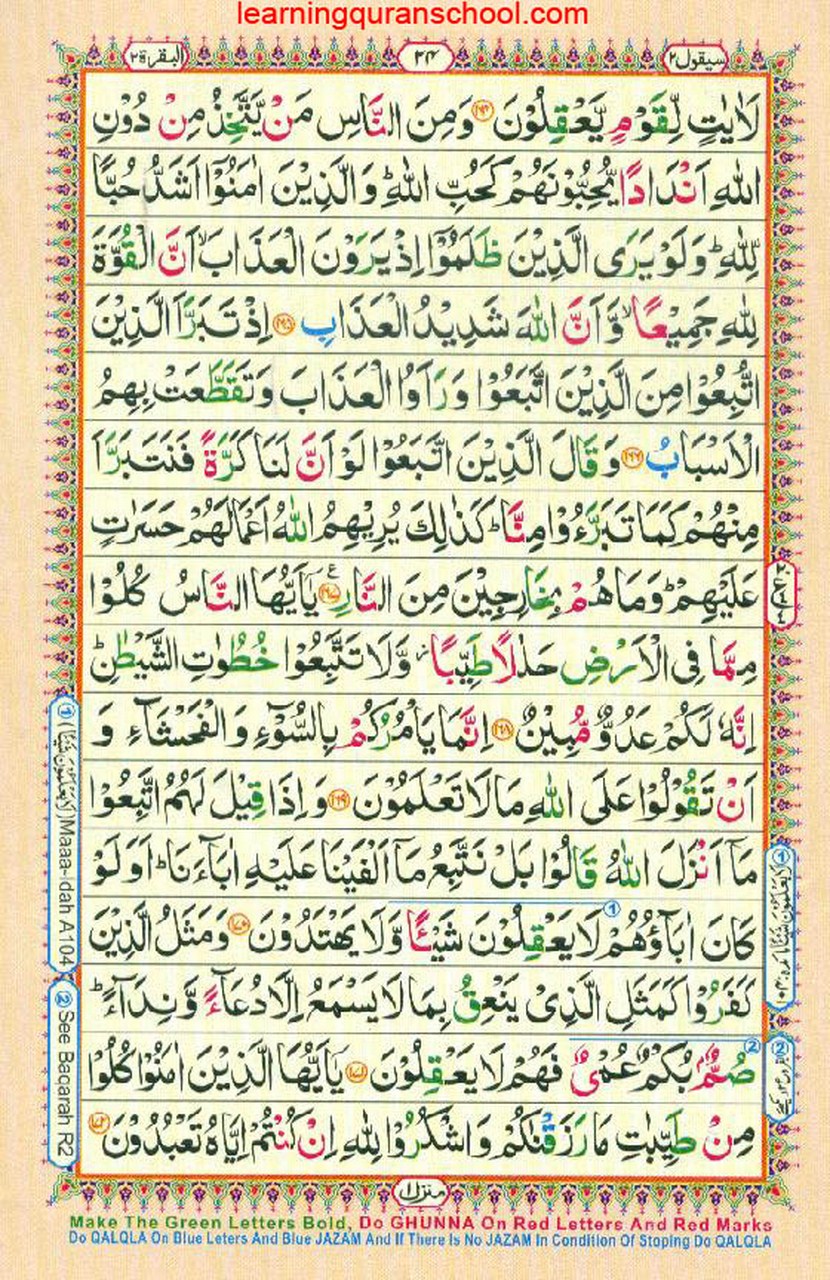 learningquranschool.com
البقرة ٢
٣٤
سيقول ٢
لَاٰيٰتٍ لِّقَوْمٍ يَّعْقِلُوْنَ ﴿۱۶۴﴾ وَمِنَ النَّاسِ مَنْ يَّتَّخِذُ مِنْ دُوْنِ
اللّٰهِ اَنْدَادًا يُّحِبُّوْنَهُمْ كَحُبِّ اللّٰهِؕ وَالَّذِيْنَ اٰمَنُوْٓا اَشَدُّ حُبًّا
لِّلّٰهِؕ وَلَوْ يَرَى الَّذِيْنَ ظَلَمُوْٓا اِذْ يَرَوْنَ الْعَذَابَۙ اَنَّ الْقُوَّةَ
لِلّٰهِ جَمِيْعًاۙ وَّاَنَّ اللّٰهَ شَدِيْدُ الْعَذَابِ ﴿۱۶۵﴾ اِذْ تَبَرَّاَ الَّذِيْنَ
اتُّبِعُوْا مِنَ الَّذِيْنَ اتَّبَعُوْا وَرَاَوُا الْعَذَابَ وَتَقَطَّعَتْ بِهِمُ
الْاَسْبَابُ ﴿۱۶۶﴾ وَقَالَ الَّذِيْنَ اتَّبَعُوْا لَوْ اَنَّ لَنَا كَرَّةً فَنَتَبَرَّاَ
مِنْهُمْ كَمَا تَبَرَّءُوْا مِنَّاؕ كَذٰلِكَ يُرِيْهِمُ اللّٰهُ اَعْمَالَهُمْ حَسَرٰتٍ
عَلَيْهِمْؕ وَمَا هُمْ بِخَارِجِيْنَ مِنَ النَّارِ ﴿۱۶۷﴾ يٰٓاَيُّهَا النَّاسُ كُلُوْا
مِمَّا فِى الْاَرْضِ حَلٰلًا طَيِّبًا ۖ وَّلَا تَتَّبِعُوْا خُطُوٰتِ الشَّيْطٰنِؕ
اِنَّهٗ لَكُمْ عَدُوٌّ مُّبِيْنٌ ﴿۱۶۸﴾ اِنَّمَا يَاْمُرُكُمْ بِالسُّوْٓءِ وَالْفَحْشَآءِ وَ
اَنْ تَقُوْلُوْا عَلَى اللّٰهِ مَا لَا تَعْلَمُوْنَ ﴿۱۶۹﴾ وَاِذَا قِيْلَ لَهُمُ اتَّبِعُوْا
مَآ اَنْزَلَ اللّٰهُ قَالُوْا بَلْ نَتَّبِعُ مَآ اَلْفَيْنَا عَلَيْهِ اٰبَآءَنَاؕ اَوَلَوْ
كَانَ اٰبَآؤُهُمْ لَا يَعْقِلُوْنَ شَيْـًٔا وَّلَا يَهْتَدُوْنَ ﴿۱۷۰﴾ وَمَثَلُ الَّذِيْنَ
كَفَرُوْا كَمَثَلِ الَّذِىْ يَنْعِقُ بِمَا لَا يَسْمَعُ اِلَّا دُعَآءً وَّنِدَآءًؕ
صُمٌّۢ بُكْمٌ عُمْىٌ فَهُمْ لَا يَعْقِلُوْنَ ﴿۱۷۱﴾ يٰٓاَيُّهَا الَّذِيْنَ اٰمَنُوْا كُلُوْا
مِنْ طَيِّبٰتِ مَا رَزَقْنٰكُمْ وَاشْكُرُوْا لِلّٰهِ اِنْ كُنْتُمْ اِيَّاهُ تَعْبُدُوْنَ ﴿۱۷۲﴾
① لَا يَعْلَمُوْنَ شَيْئًا Maaa-idah A104
② See Baqarah R2
منزل ١
Make The Green Letters Bold, Do GHUNNA On Red Letters And Red Marks
Do QALQLA On Blue Leters And Blue JAZAM And If There Is No JAZAM In Condition Of Stoping Do QALQLA